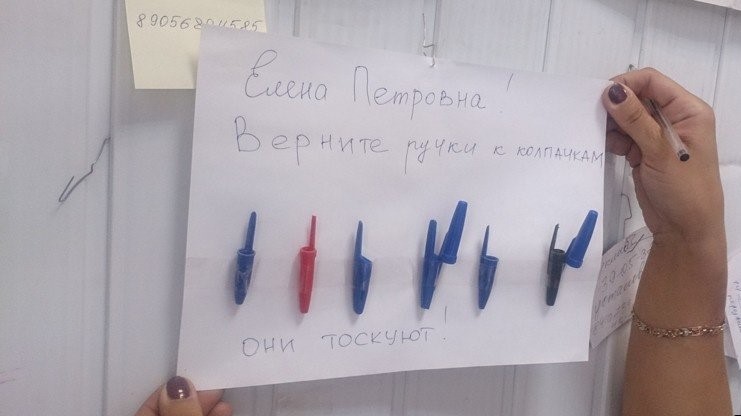 Елена Петровна!
Верните ручки к колпачкам
они тоскуют!